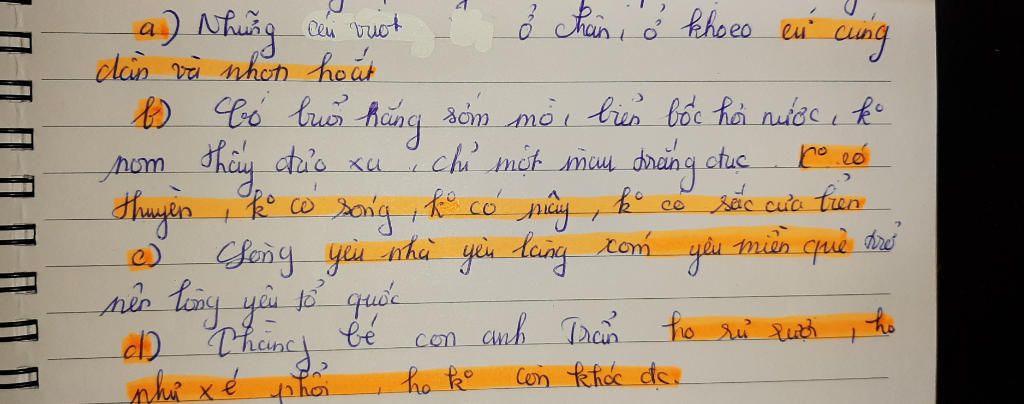 a) Những cái vuốt ở chân, ở khoeo cứ cứng
dần và nhọn hoắt
b) Có buổi nắng sớm mờ, biển bốc hơi nước, kº
nom thấy đảo xa, chỉ một màu trắng đục. kº có
thuyền, kº có sóng, kº có mây, kº có sắc của biển
c) Lòng yêu nhà yêu làng xóm yêu miền quê trở
nên lòng yêu tổ quốc
d) Thằng bé con anh Trần ho rũ rượi, ho
như xé phổi, ho kº còn khóc đc.